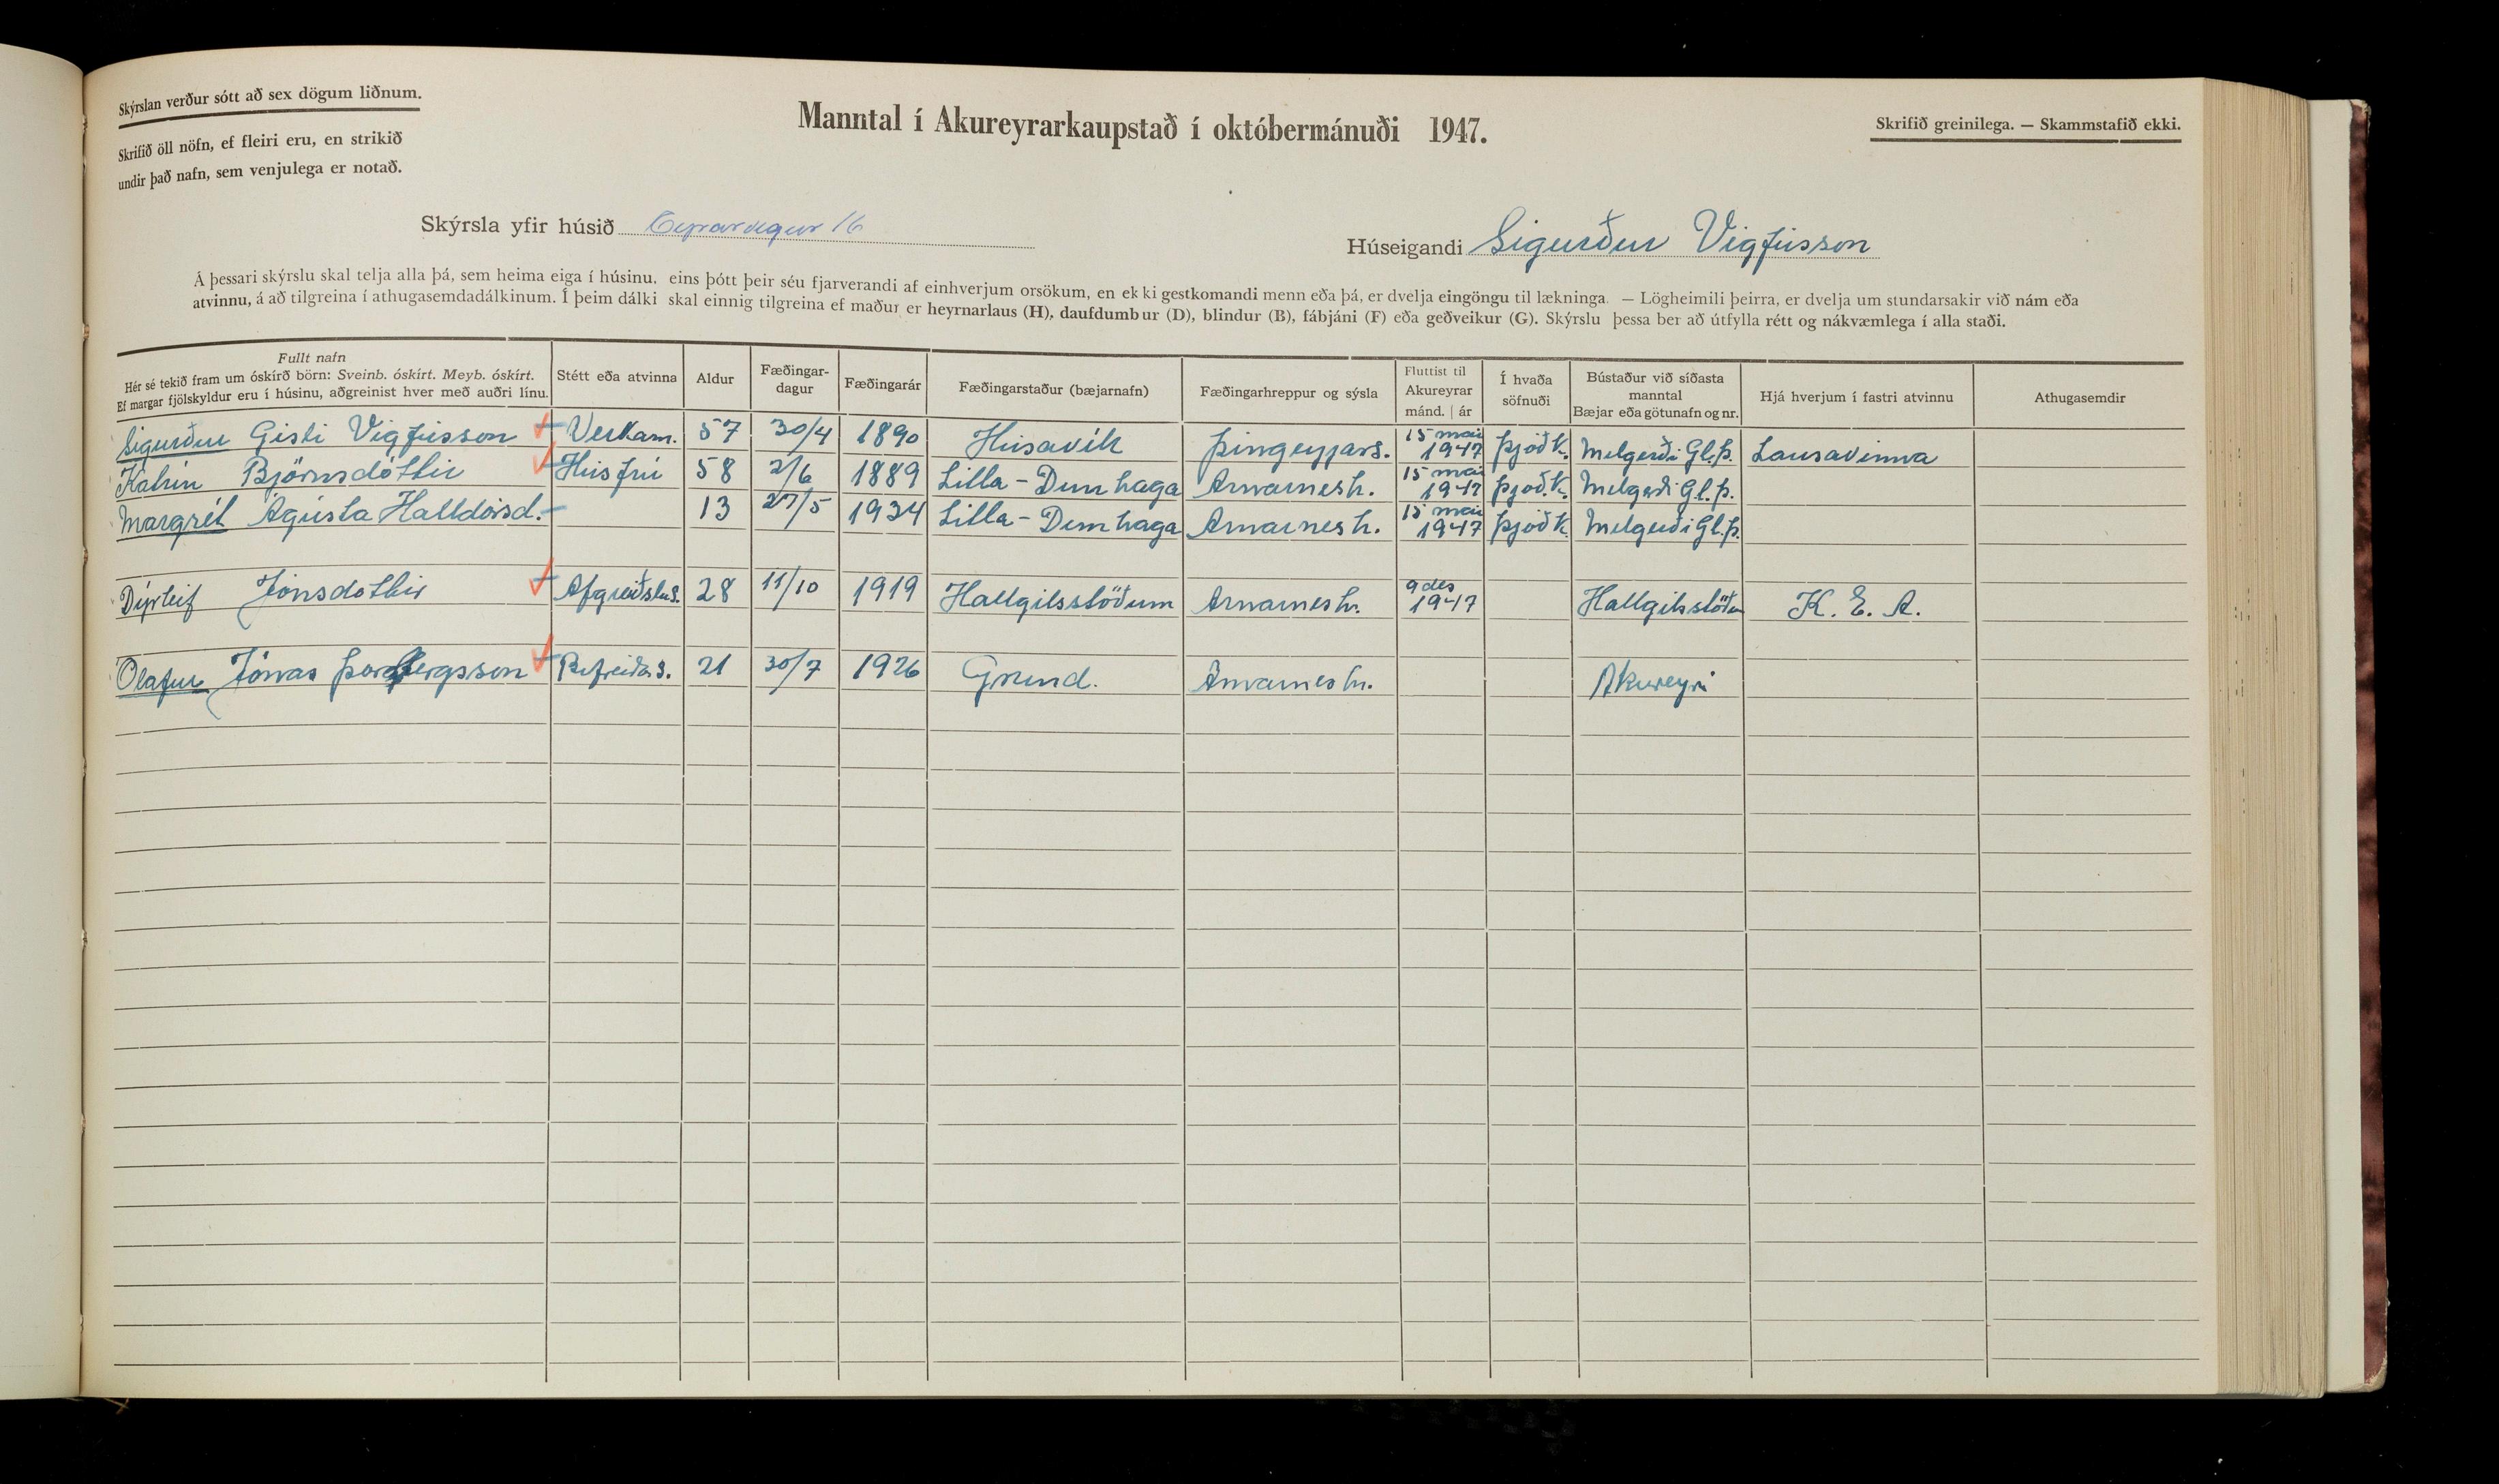 Skýrslan verður sótt að sex dögum liðnum.
Skrifið öll nöfn, ef fleiri eru, en strikið
undir það nafn, sem venjulega er notað.
Manntal í Akureyrarkaupstað í októbermánuði 1947.
Skrifið greinilega. — Skammstafið ekki.
Skýrsla yfir húsið Eyrarvegur 16
Húseigandi Sigurður Vigfússon
Á þessari skýrslu skal telja alla þá, sem heima eiga í húsinu, eins þótt þeir séu fjarverandi af einhverjum orsökum, en ekki gestkomandi menn eða þá, er dvelja eingöngu til lækninga. — Lögheimili þeirra, er dvelja um stundarsakir við nám eða
atvinnu, á að tilgreina í athugasemdadálkinum. Í þeim dálki skal einnig tilgreina ef maður er heyrnarlaus (H), daufdumbur (D), blindur (B), fábjáni (F) eða geðveikur (G). Skýrslu þessa ber að útfylla rétt og nákvæmlega í alla staði.
Fullt nafn
Hér sé tekið fram um óskírð börn: Sveinb. óskírt. Meyb. óskírt.
Ef margar fjölskyldur eru í húsinu, aðgreinist hver með auðri línu.
Stétt eða atvinna
Aldur
Fæðingar-
dagur
Fæðingarár
Fæðingarstaður (bæjarnafn)
Fæðingarhreppur og sýsla
Fluttist til
Akureyrar
mánd. | ár
Í hvaða
söfnuði
Bústaður við síðasta
manntal
Bæjar eða götunafn og nr.
Hjá hverjum í fastri atvinnu
Athugasemdir
Sigurður Gísli Vigfússon Verkam. 57 30/4 1890 Húsavík Þingeyjars. 15 maí 1947 Þjóðk. Melgerði Gl.þ. Lausavinna
Katrín Björnsdóttir Húsfrú 58 2/6 1889 Litla-Dunhaga Arnarnesh. 15 maí 1947 Þjóð.k. Melgerði Gl.þ.
Margrét Ágústa Halldórsd. 13 27/5 1934 Litla-Dunhaga Arnarnesh. 15 maí 1947 Þjóðk. Melgerði Gl.þ.
Dýrleif Jónsdóttir Afgreiðslus. 28 11/10 1919 Hallgilsstöðum Arnarnesh. 9 des 1947 Hallgilsstöðum K. E. A.
Ólafur Jónas Þorbergsson Bifreiðas. 21 30/7 1926 Grund. Arnarnesh. Akureyri